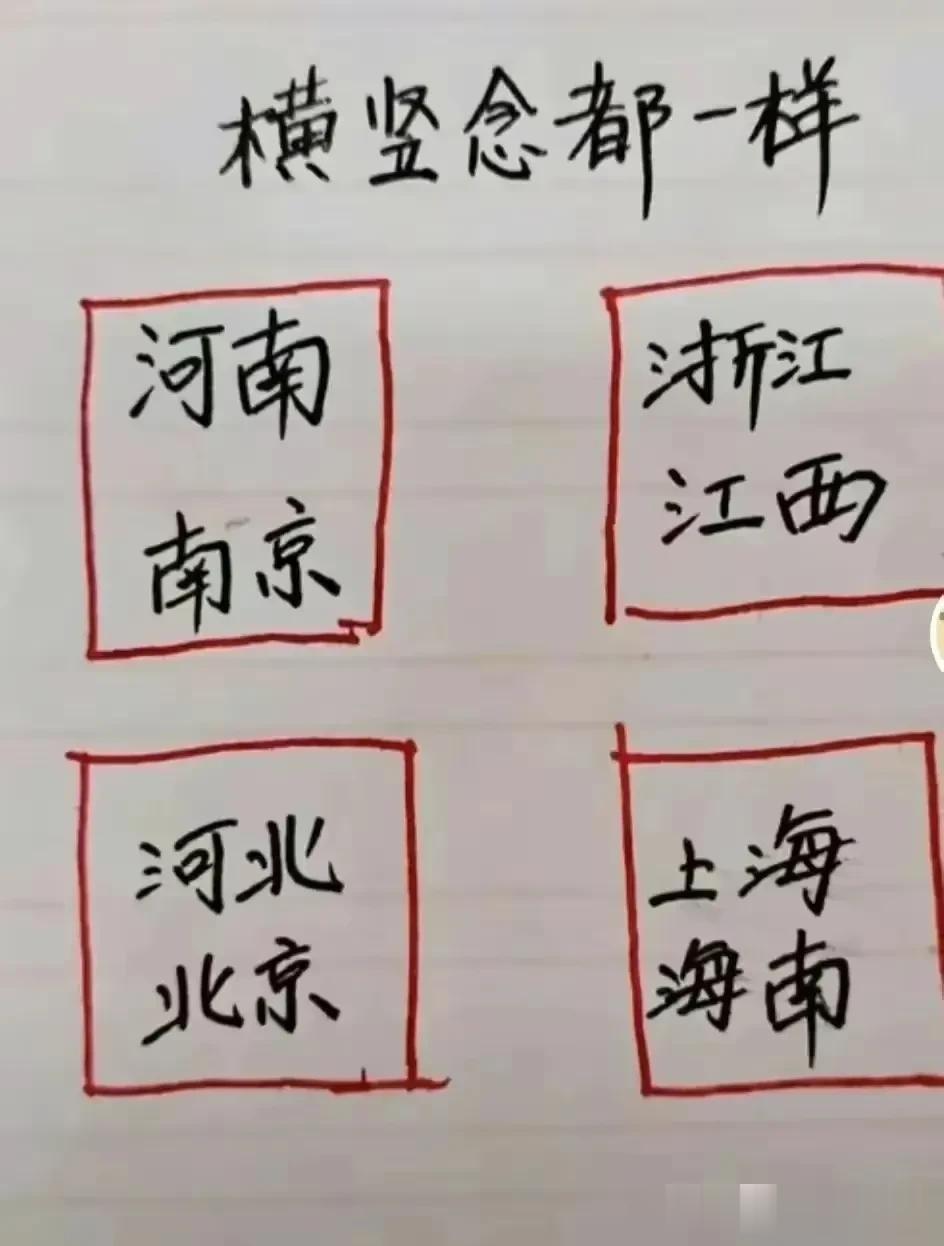 横竖念都一样
河南
南京
浙江
江西
河北
北京
上海
海南